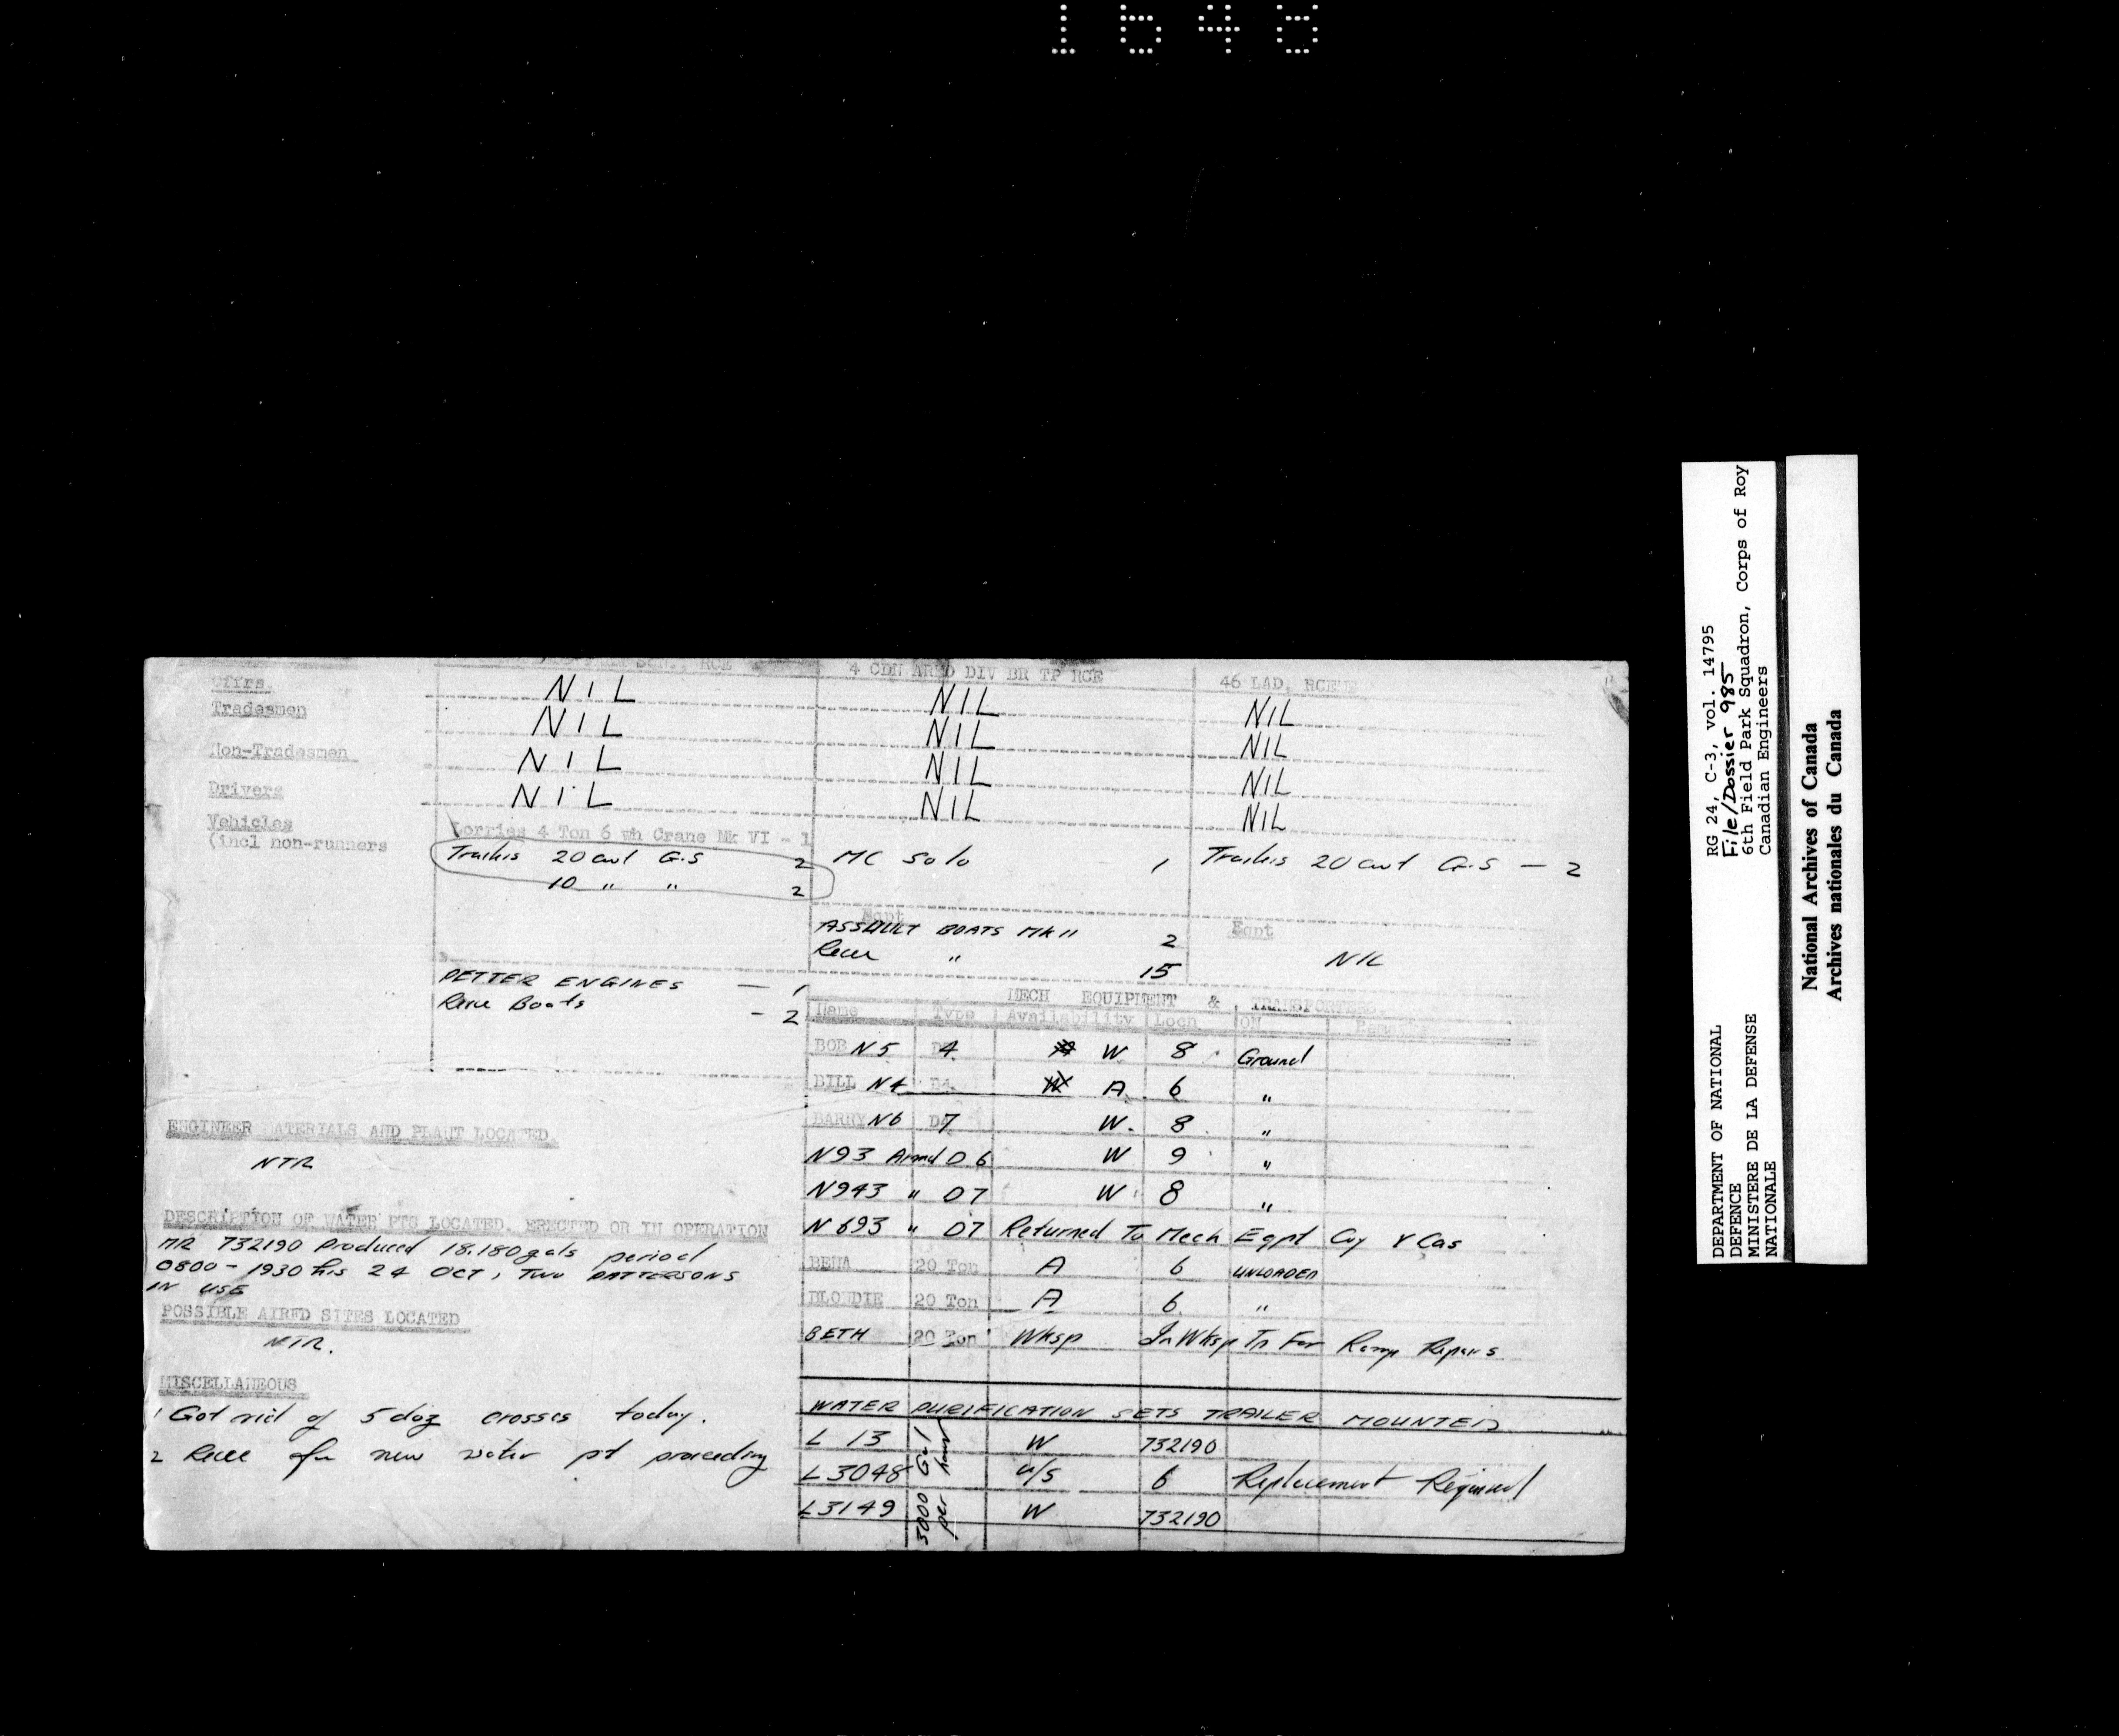 1648
RCE
4 CDN ARMD DIV BR TP RCE
46 LAD, RCEME
Offrs.
NIL
NIL
NIL
Tradesmen
NIL
NIL
NIL
Non-Tradesmen
NIL
NIL
NIL
Drivers
NIL
NIL
NIL
Vehicles
(incl non-runners
Lorries 4 Ton 6 wh Crane Mk VI - 1
Trailers 20 cwt G.S 2
10 " " 2
MC Solo 1
Trailers 20 cwt G.S — 2
Eqpt
ASSAULT BOATS MK II 2
Recce " 15
Eqpt
NIL
PETTER ENGINES — 1
Recce Boats - 2
MECH EQUIPMENT & TRANSPORTERS.
Name Type Availability Locn ON Remarks
BOB N5 D4 W 8 Ground
BILL N4 D4 A 6 "
BARRY N6 D7 W. 8 "
N93 Armd D6 W 9 "
N943 " D7 W 8 "
N693 " D7 Returned To Mech Eqpt Coy V Cas
BENA 20 Ton A 6 UNLOADED
BLONDIE 20 Ton A 6 "
BETH 20 Ton Wksp In Wksp Tp For Ramp Repairs
WATER PURIFICATION SETS TRAILER MOUNTED
3000 Gal per hour
L 13 W 732190
L3048 u/s 6 Replacement Required
L3149 W 732190
ENGINEER MATERIALS AND PLANT LOCATED
NTR
DESCRIPTION OF WATER PTS LOCATED. ERECTED OR IN OPERATION
MR 732190 produced 18,180 gals period
0800 - 1930 hrs 24 OCT, TWO PATTERSONS
IN USE
POSSIBLE AIRFD SITES LOCATED
NTR.
MISCELLANEOUS
1 Got rid of 5 doz crosses today.
2 Recce for new water pt proceeding
RG 24, C-3, vol. 14795
File/Dossier 985
6th Field Park Squadron, Corps of Roy
Canadian Engineers
DEPARTMENT OF NATIONAL
DEFENCE
MINISTERE DE LA DEFENSE
NATIONALE
National Archives of Canada
Archives nationales du Canada